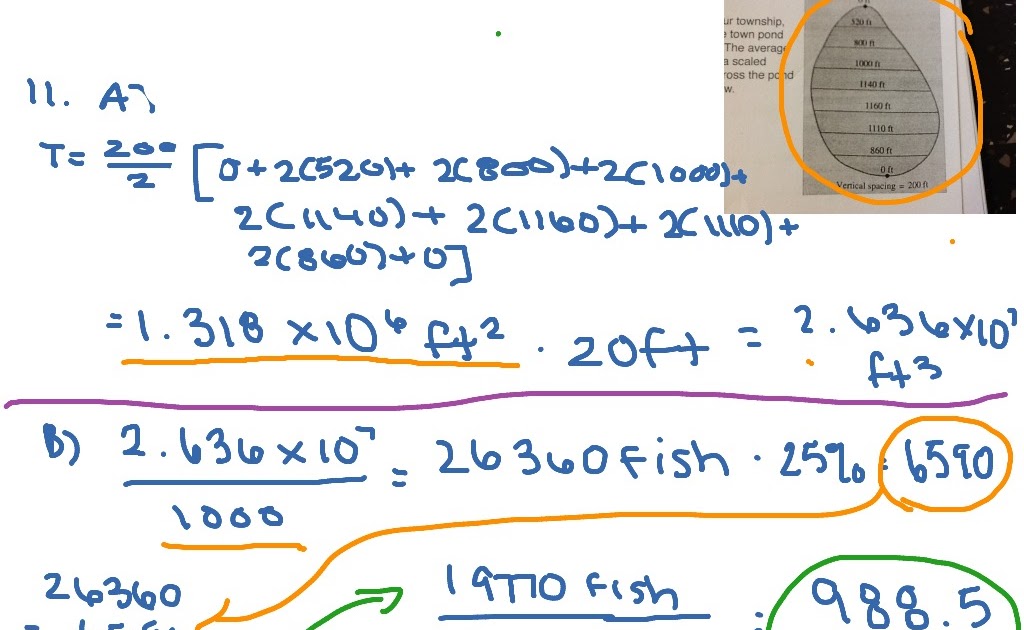 ur township,
town pond
The average
a scaled
ross the pond
w.
0 ft
520 ft
800 ft
1000 ft
1140 ft
1160 ft
1110 ft
860 ft
0 ft
Vertical spacing = 200 ft
11. A)
T= 200/2 [0+2(520)+ 2(800)+2(1000)+
2(1140)+ 2(1160)+ 2(1110)+
2(860)+0]
=1.318 ×10⁶ ft² · 20ft = 2.636×10⁷
ft3
B) 2.636×10⁷ / 1000 = 26360 fish · 25% = 6590
26360
19770 fish
988.5